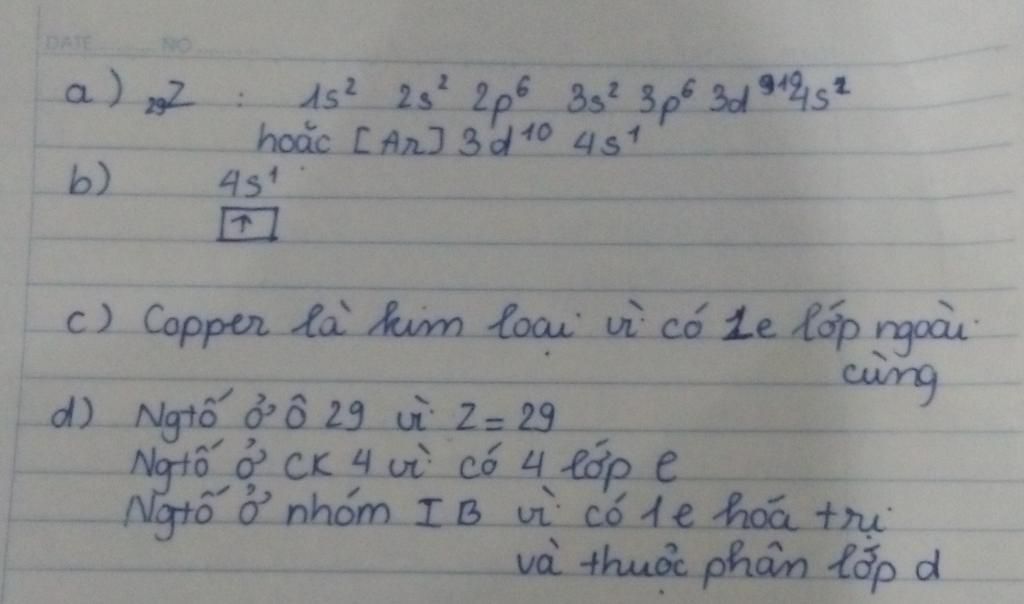 DATE NO
a) ₂₉Z : 1s² 2s² 2p⁶ 3s² 3p⁶ 3d 4s
hoặc [Ar] 3d¹⁰ 4s¹
b) 4s¹
↑
c) Copper là kim loại vì có 1e lớp ngoài
cùng
d) Ngtố ở ô 29 vì Z = 29
Ngtố ở CK 4 vì có 4 lớp e
Ngtố ở nhóm IB vì có 1e hoá trị
và thuộc phân lớp d